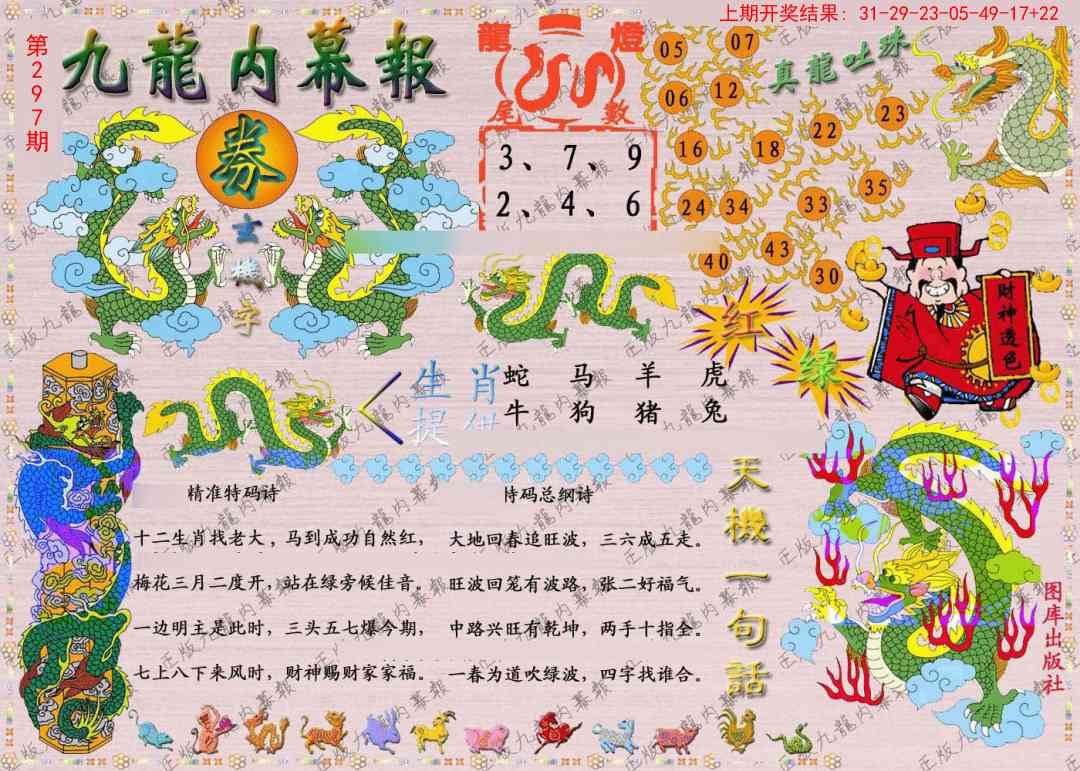 上期开奖结果: 31-29-23-05-49-17+22
第297期
九龍内幕報
券
玄機字
龍燈
尾數
3、7、9
2、4、6
真龍吐珠
05 07
06 12
16 18 22 23
24 34 33 35
40 43 30
红
绿
财神透色
生肖
蛇 马 羊 虎
牛 狗 猪 兔
精准特码诗
十二生肖找老大，马到成功自然红，
梅花三月二度开，站在绿旁候佳音。
一边明主是此时，三头五七爆今期，
七上八下来风时，财神赐财家家福。
特码总纲诗
大地回春追旺波，三六成五走。
旺波回笼有波路，张二好福气。
中路兴旺有乾坤，两手十指全。
一春为道吹绿波，四字找谁合。
天機一句話
图库出版社
正版九龍内幕報